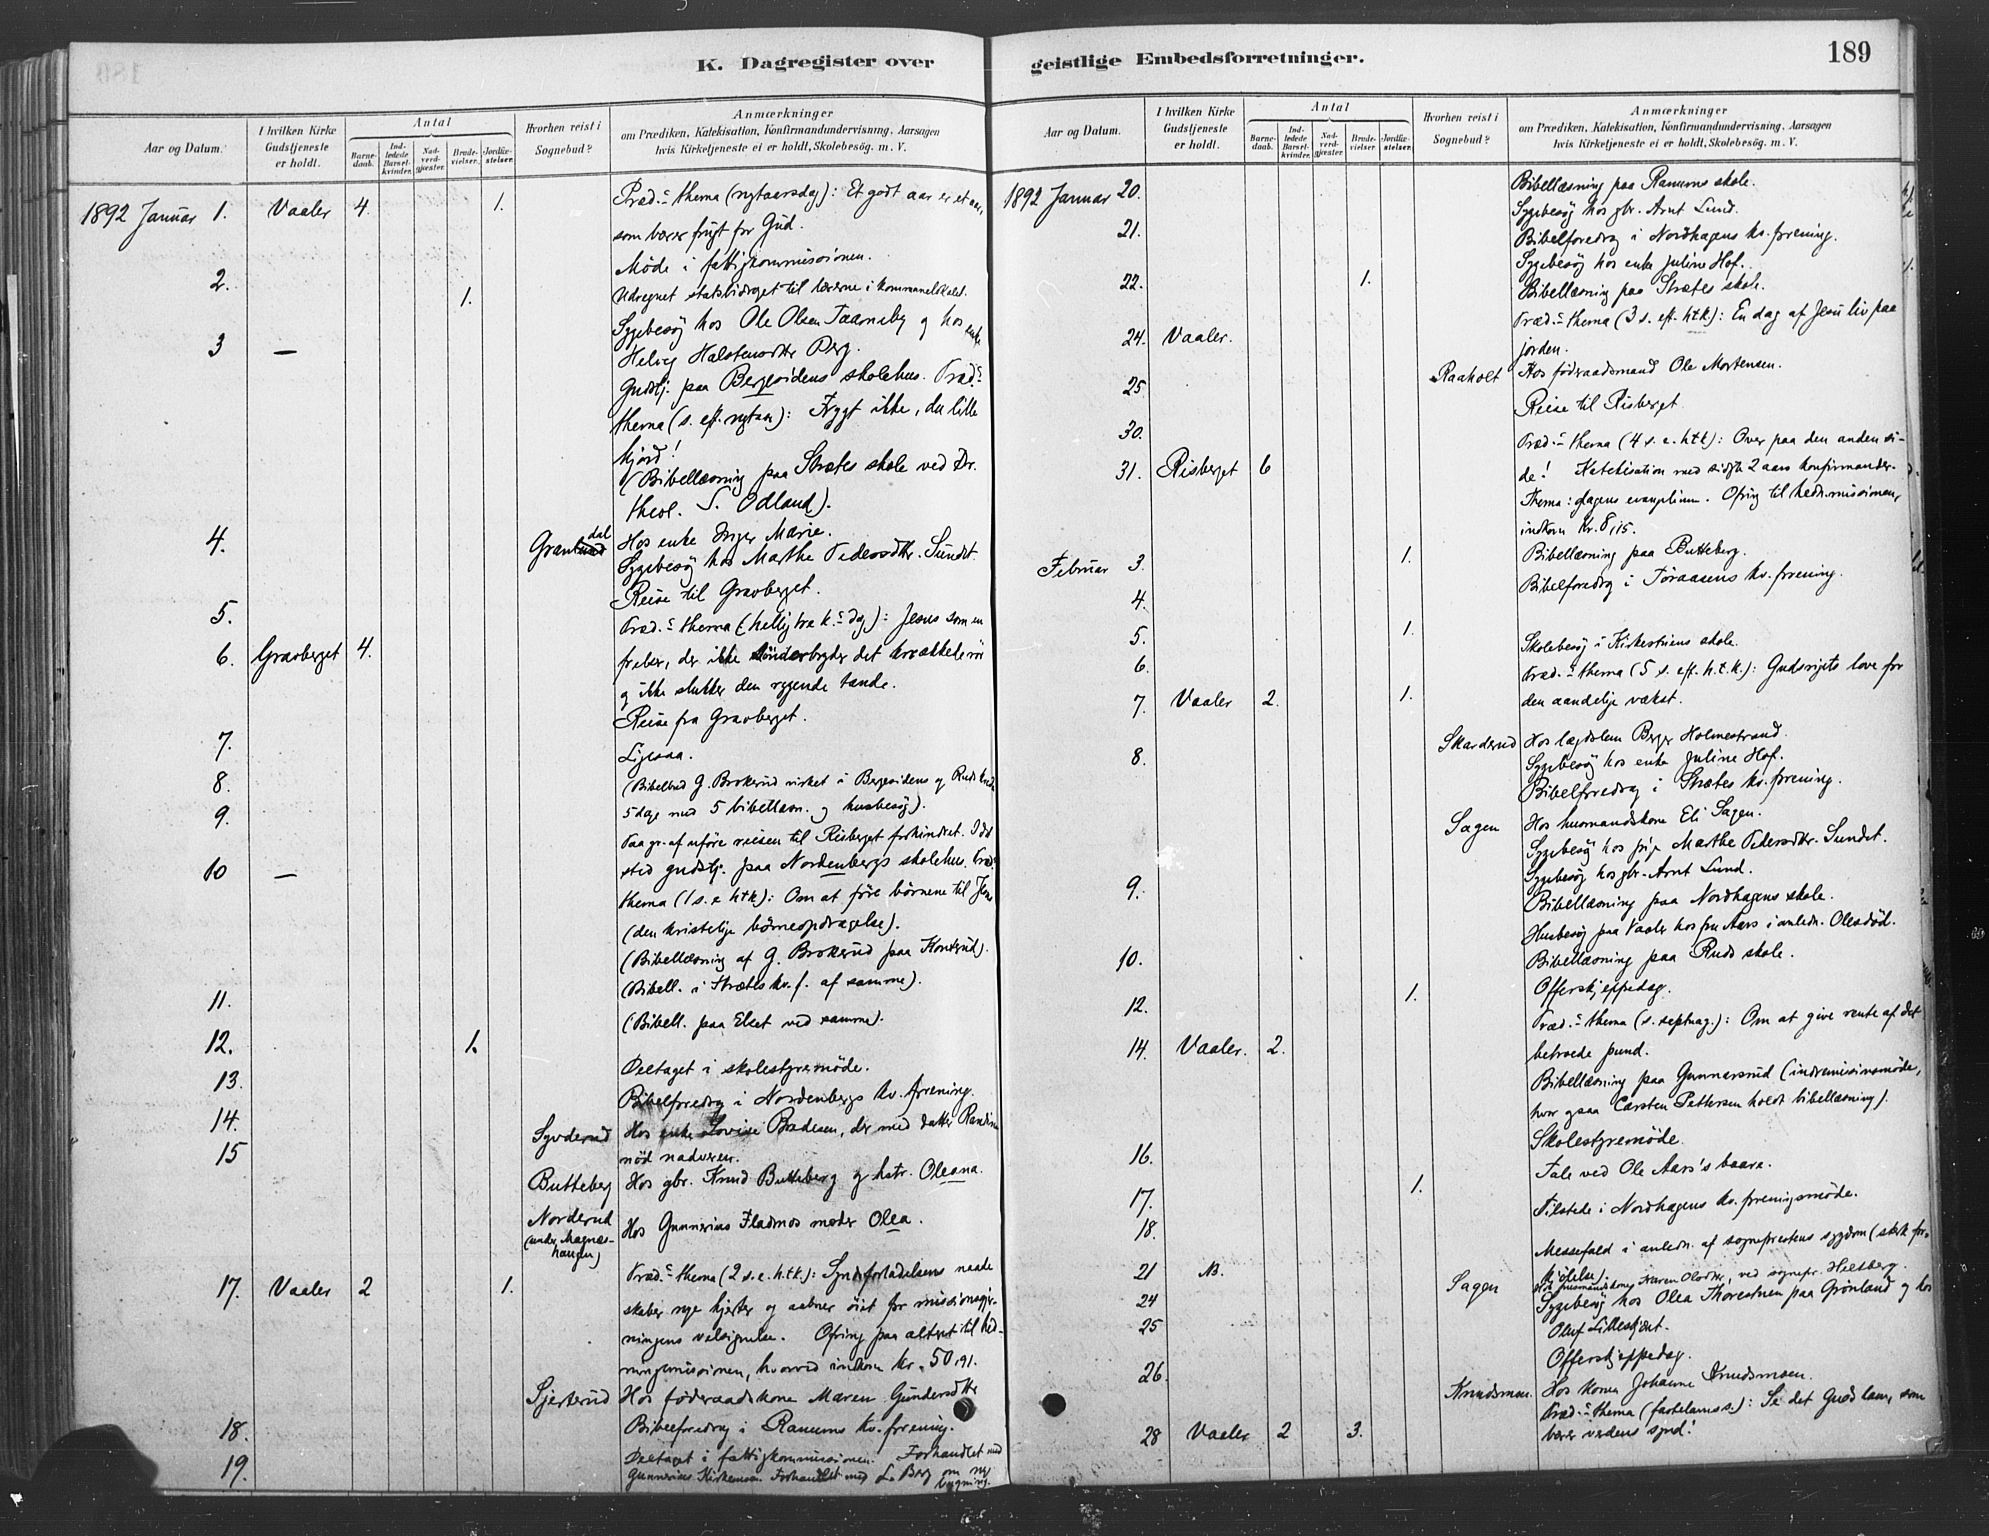 K. Dagregister over
Aar og Datum.
I hvilken Kirke Gudstjeneste er holdt.
Antal
Barnedaab.
Indledede Barselkvinder.
Nadverdgjæster.
Brudevielser.
Jordfæstelser.
Hvorhen reist i Sognebud?
Anmærkninger
om Prædiken, Katekisation, Konfirmandundervisning, Aarsagen
hvis Kirketjeneste ei er holdt, Skolebesøg. m. V.
1892 Januar 1. Vaaler 4. 1. Præd.s thema (nytaarsdag): Et godt aar er et aar,
som bærer frugt for Gud.
Møde i fattigkommissionen.
2. 1. Udregnet statsbidraget til lærerne i kommunelokalet.
Sygebesøg hos Ole Olsen Taarneby og hos enke
3 — Helvig Halstensdtr Berg.
Gudstj. paa Bergesidens skolehus. Præd.s
thema (s. eft. nytaar): Frygt ikke, du lille
hjord!
(Bibellæsning paa Strætes skole ved Dr.
theol. S. Odland).
4. Granlunddal Hos enke Inger Marie.
Sygebesøg hos Marthe Pedersdtr. Sundet.
Reise til Gravberget.
5. Præd.s thema (hellig tre k.s dg): Jesus som en
6. Gravberget 4. frelser, der ikke sønderbryder det knækkede rør
og ikke slukker den rygende tande.
Reise fra Gravberget.
7. Ligesaa.
8. (Bibelbud G. Brokerud virket i Bergesidens og Ruds kreds
9. 5 dage med 5 bibellæsn. og husbesøg).
Paa gr. af uføre reisen til Risberget forhindret. I det
10 — sted gudstj. paa Nordenbergs skolehus. Præd.
thema (1 s. e. htk): Om at føre børnene til Jesus
(den kristelige børneopdragelse).
(Bibellæsning af G. Brokerud paa Konterud).
11. (Bibell. i Strætes kv. f. af samme).
(Bibell. paa Elset ved samme).
12. 1.
13. Deltaget i skolestyremøde.
14. Bibelforedrag i Nordenbergs kv. forening.
15 Syverud Hos enke Lovise Brodesen, der med datter Randine
nød nadveren.
Butteberg Hos gbr. Knud Butteberg og hstr. Oleana.
Norderud Hos Gunnerius Fladmos moder Olea.
(under Magnushaugen)
17. Vaaler 2 1. Præd.s thema (2 s. e. h.t.k.): Syndsforladelsens naade
skaber nye hjerter og aabner øiet for missionsgjer-
ningens velsignelse. Ofring paa alteret til hed-
ningemissionen, hvorved indkom Kr. 50,91.
Sjerterud Hos føderaadskone Maren Gundersdtr
18. Bibelforedrag i Ranums kv. forening.
19. Deltaget i fattigkommissionen. Forhandlet med
Gunnerius Kirkemoen. Forhandlet med L. Berg om ny bygning.
geistlige Embedsforretninger.
189
Aar og Datum.
I hvilken Kirke Gudstjeneste er holdt.
Antal
Barnedaab.
Indledede Barselkvinder.
Nadverdgjæster.
Brudevielser.
Jordfæstelser.
Hvorhen reist i Sognebud?
Anmærkninger
om Prædiken, Katekisation, Konfirmandundervisning, Aarsagen
hvis Kirketjeneste ei er holdt, Skolebesøg. m. V.
1892 Januar 20. Bibellæsning paa Ranums skole.
Sygebesøg hos gbr. Arnt Lund.
21. Bibelforedrag i Nordhagens kv. forening.
Sygebesøg hos enke Juline Hof.
22. 1. Bibellæsning paa Strætes skole.
24. Vaaler. Præd.s thema (3 s. eft. h.t.k): En dag af Jesu liv paa
jorden.
25 Raaholt Hos føderaadsmand Ole Mortensen.
30. Reise til Risberget
Præd.s thema (4 s. e. h.t.k): Over paa den anden si-
31. Risberget 6 de! Katekisation med sidste 2 aars konfirmander.
Thema: dagens evangelium. Ofring til hedn. missionen,
indkom Kr. 8,15.
Februar 3. 1. Bibellæsning paa Butteberg.
4. Bibelforedrag i Toraasens kv. forening.
5. 1.
6. Skolebesøg i Kirkestuens skole.
Præd.s thema (5 s. eft. h.t.k.): Gudsrigets love for
7. Vaaler 2. 1. den aandelige vækst.
8. Skarderud Hos lægdslem Berger Holmestrand.
Sygebesøg hos enke Juline Hof.
Bibelforedrag i Strætes kv. forening.
Sagen Hos husmandskone Eli Sagen.
Sygebesøg hos pige Marthe Pedersdtr. Sundet.
9. Sygebesøg hos gbr. Arnt Lund.
Bibellæsning paa Nordhagens skole.
Husbesøg paa Vaaler hos fru Aars i anledn. Oles død.
10. Bibellæsning paa Ruds skole.
12. 1. Offerskjeppedag.
Præd.s thema (s. septuag.): Om at give rente af det
14. Vaaler. 2. betroede pund.
Bibellæsning paa Gunnarsrud (indremissionsmøde,
hvor ogsaa Carsten Pettersen holdt bibellæsning).
Skolestyremøde.
16. Tale ved Ole Aars's baare.
17. 1. Tilstede i Nordhagens kv. foreningsmøde.
18. Messefald i anledn. af sogneprestens sygdom (stærk for-
21 N. kjølelse).
Sagen Hos husmandskone Karen Olsdtr, ved sognepr. Hesberg.
24 Sygebesøg hos Olea Thorestuen paa Grønland og hos
25 Oluf Lilleskjæt.
Offerskjeppedag.
26. Knudsmoen. Hos kone Johanne Knudsmoen.
Præd.s thema (fastelavnss.): Se det Guds lam, som
28 Vaaler 2 3. bærer verdens synd!